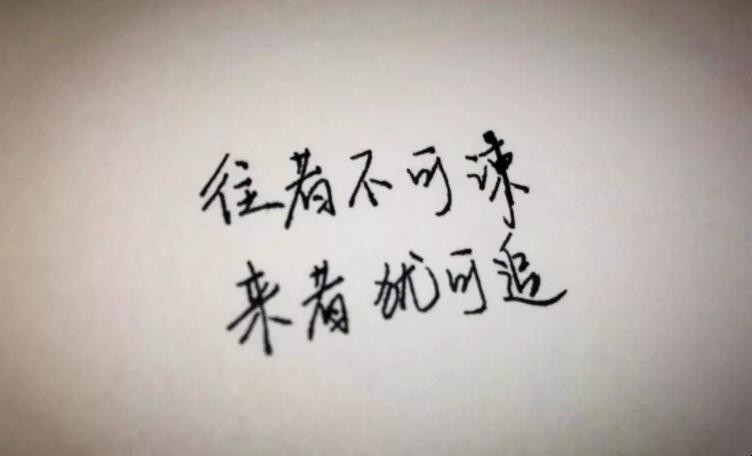 往者不可谏
来者犹可追